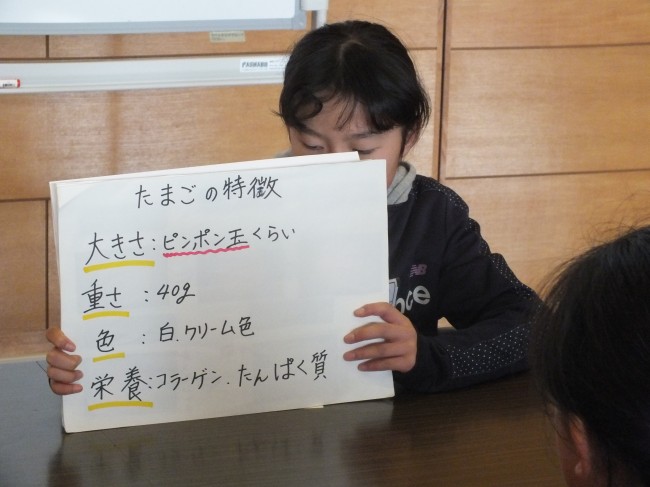 たまごの特徴
大きさ:ピンポン玉くらい
重さ:40g
色:白.クリーム色
栄養:コラーゲン.たんぱく質